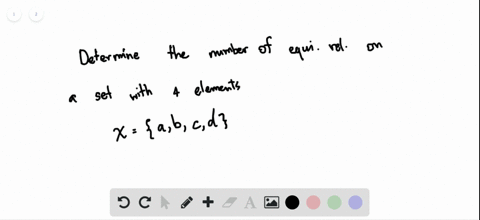 Determine the number of equi. rel. on
a set with 4 elements
X = {a,b,c,d}